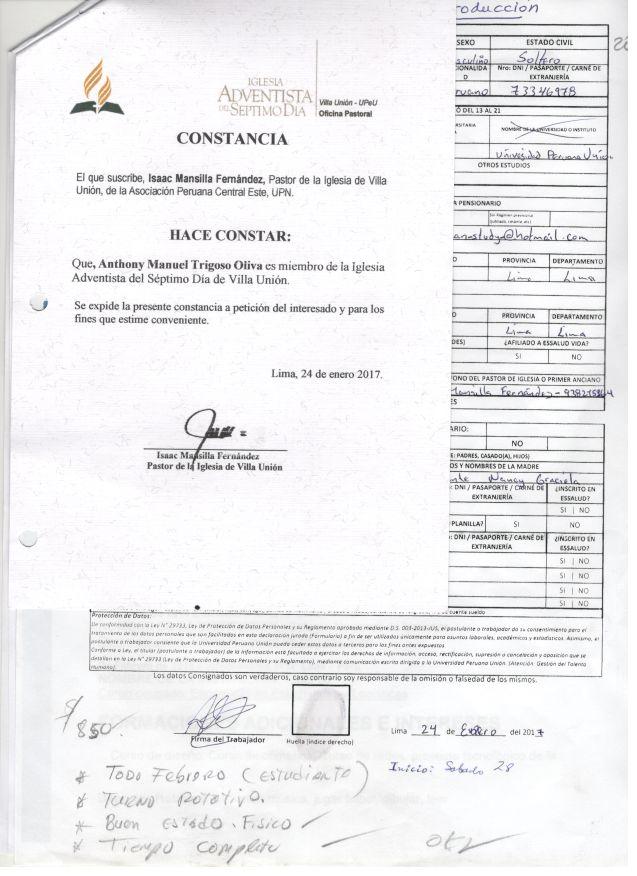 roducción
IGLESIA
ADVENTISTA
DEL SÉPTIMO DÍA
Villa Unión - UPeU
Oficina Pastoral
CONSTANCIA
El que suscribe, Isaac Mansilla Fernández, Pastor de la Iglesia de Villa
Unión, de la Asociación Peruana Central Este, UPN.
HACE CONSTAR:
Que, Anthony Manuel Trigoso Oliva es miembro de la Iglesia
Adventista del Séptimo Día de Villa Unión.
Se expide la presente constancia a petición del interesado y para los
fines que estime conveniente.
Lima, 24 de enero 2017.
Isaac Mansilla Fernández
Pastor de la Iglesia de Villa Unión
SEXO ESTADO CIVIL
sculino Soltero
CIONALIDA
D
Nro: DNI / PASAPORTE / CARNÉ DE
EXTRANJERÍA
ruano 73346978
DEL 13 AL 21
NOMBRE DE LA UNIVERSIDAD O INSTITUTO
Universidad Peruana Unión
OTROS ESTUDIOS
A PENSIONARIO
an-study@hotmail.com
PROVINCIA DEPARTAMENTO
Lima Lima
PROVINCIA DEPARTAMENTO
Lima Lima
DES) ¿AFILIADO A ESSALUD VIDA?
SI NO
FONO DEL PASTOR DE IGLESIA O PRIMER ANCIANO
Mansilla Fernández -
ES
ARIO:
NO
E: PADRES, CASADO(A), HIJOS)
OS Y NOMBRES DE LA MADRE
Nancy Graciela
: DNI / PASAPORTE / CARNÉ DE
EXTRANJERÍA
¿INSCRITO EN
ESSALUD?
SI | NO
PLANILLA? SI NO
: DNI / PASAPORTE / CARNÉ DE
EXTRANJERÍA
¿INSCRITO EN
ESSALUD?
SI | NO
SI | NO
SI | NO
SI | NO
cuenta sueldo
Protección de Datos:
De conformidad con la Ley N° 29733, Ley de Protección de Datos Personales y su Reglamento aprobado mediante D.S. 003-2013-JUS, el postulante o trabajador da su consentimiento para el
tratamiento de los datos personales que son facilitados en esta declaración jurada (Formulario) a fin de ser utilizados únicamente para asuntos laborales, académicos y estadísticos. Asimismo, el
postulante o trabajador consiente que la Universidad Peruana Unión pueda ceder estos datos a terceros para los fines antes expuestos.
Conforme a Ley, el titular (postulante o trabajador) de la información está facultado a ejercitar los derechos de información, acceso, rectificación, supresión o cancelación y oposición que se
detallan en la Ley N° 29733 (Ley de Protección de Datos Personales y su Reglamento), mediante comunicación escrita dirigida a la Universidad Peruana Unión. (Atención: Gestión del Talento
Humano).
Los datos Consignados son verdaderos, caso contrario soy responsable de la omisión o falsedad de los mismos.
S/ 850.
Firma del Trabajador
Huella (índice derecho)
Lima 24 de Enero del 2017
Inicio: Sabado 28
* TODO FEBRERO (ESTUDIANTE)
* TURNO ROTATIVO.
* Buen ESTADO FISICO
* Tiempo Completo